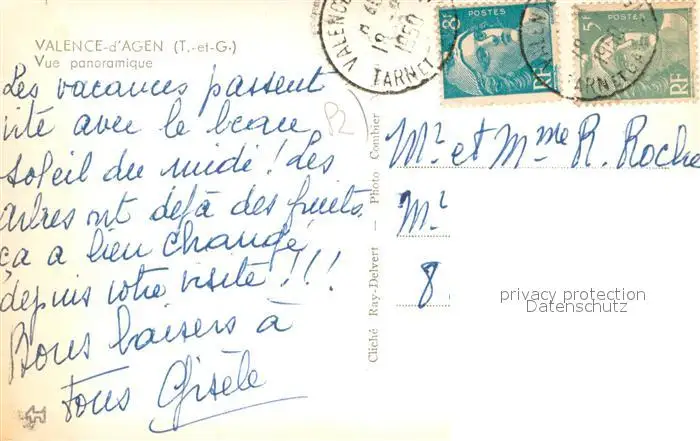 VALENCE-d'AGEN (T.-et-G.)
Vue panoramique
Les vacances passent
vite avec le beau
soleil du midi! Les
arbres ont déjà des fruits.
ça a bien changé
depuis votre visite!!!
Bons baisers à
tous Gisèle
Cliché Ray-Delvert — Photo Combier
VALENCE
18
1950
TARNET
8F POSTES
RF
5F POSTES
RF
1950
TARN ET GA
Mr et Mme R. Roche
Mr
8.
privacy protection
Datenschutz